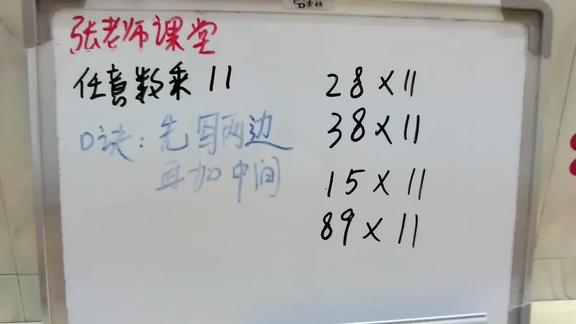 张老师课堂
任意数乘 11
口诀：先写两边
再加中间
28×11
38×11
15×11
89×11